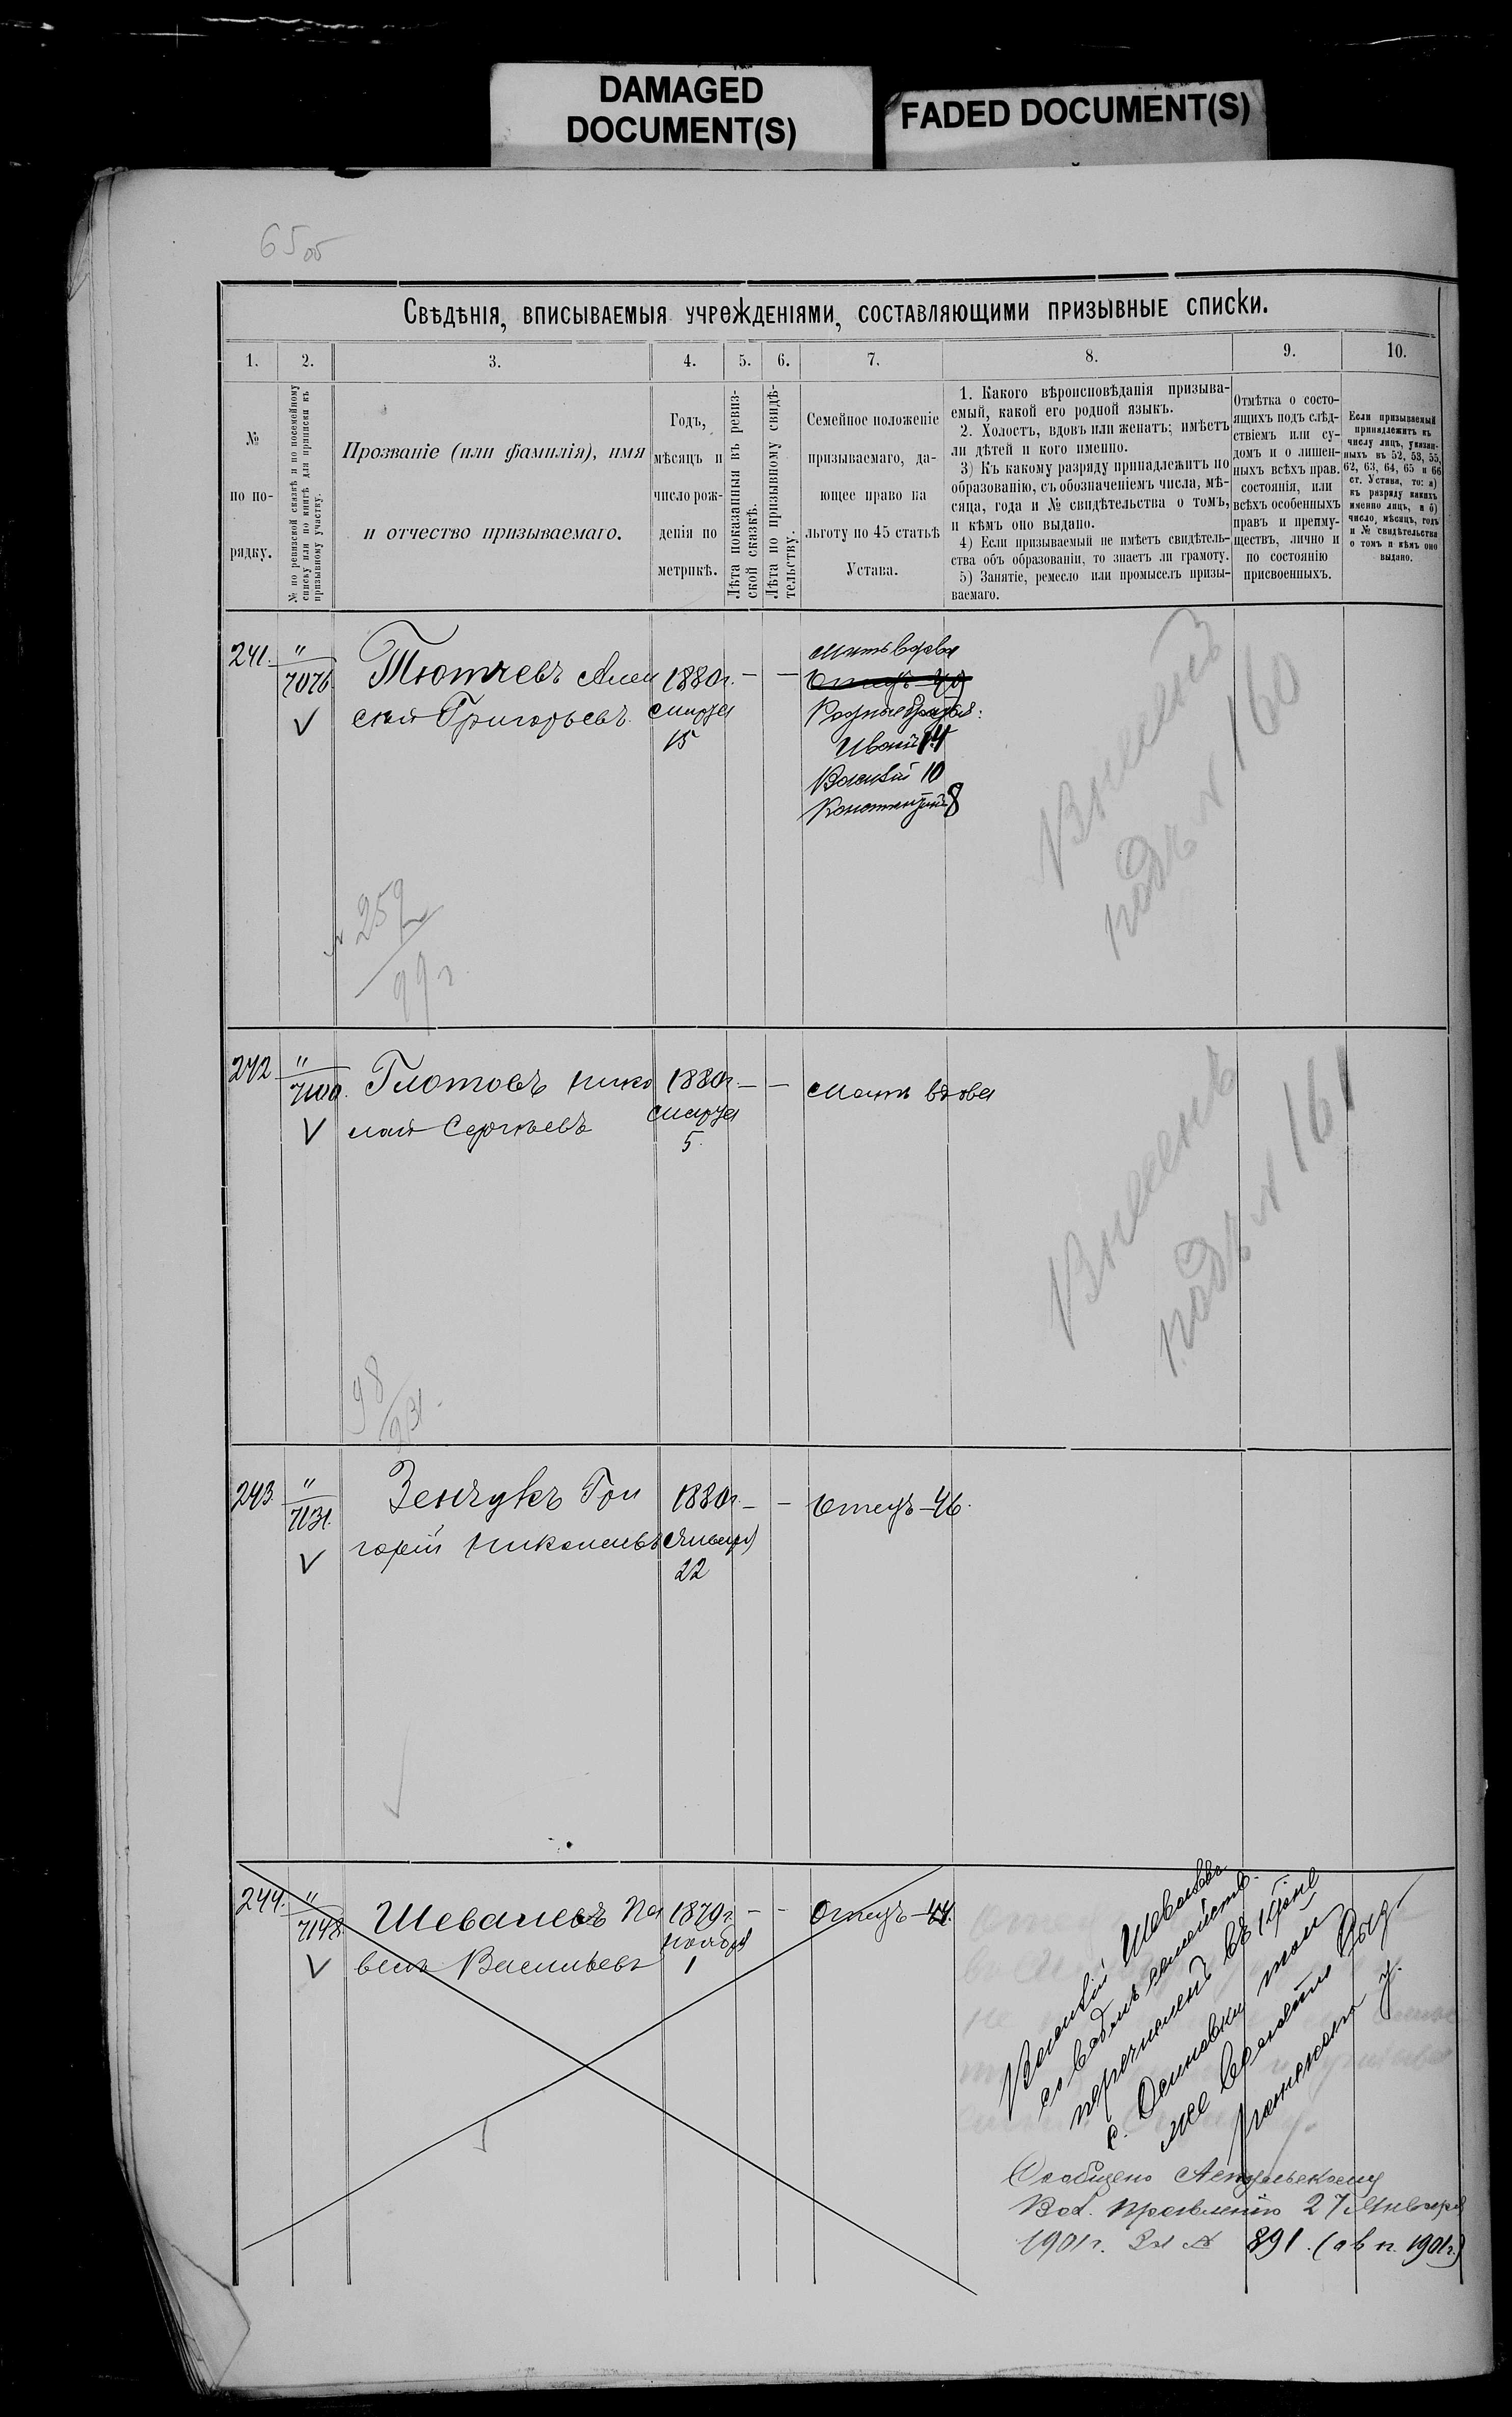 DAMAGED
DOCUMENT(S)
FADED DOCUMENT(S)
65 об
Свѣдѣнія, вписываемыя учрежденіями, составляющими призывные списки.
1. 2. 3. 4. 5. 6. 7. 8. 9. 10.
№
по по-
рядку.
№ по ревизской сказкѣ и по посемейному
списку или по книгѣ для приписки къ
призывному участку.
Прозваніе (или фамилія), имя
и отчество призываемаго.
Годъ,
мѣсяцъ и
число рож-
денія по
метрикѣ.
Лѣта показанныя въ ревиз-
ской сказкѣ.
Лѣта по призывному свидѣ-
тельству.
Семейное положеніе
призываемаго, да-
ющее право на
льготу по 45 статьѣ
Устава.
1. Какого вѣроисповѣданія призыва-
емый, какой его родной языкъ.
2. Холостъ, вдовъ или женатъ; имѣетъ
ли дѣтей и кого именно.
3) Къ какому разряду принадлежитъ по
образованію, съ обозначеніемъ числа, мѣ-
сяца, года и № свидѣтельства о томъ,
и кѣмъ оно выдано.
4) Если призываемый не имѣетъ свидѣтель-
ства объ образованіи, то знаетъ ли грамоту.
5) Занятіе, ремесло или промыселъ призы-
ваемаго.
Отмѣтка о состо-
ящихъ подъ слѣд-
ствіемъ или су-
домъ и о лишен-
ныхъ всѣхъ правъ
состоянія, или
всѣхъ особенныхъ
правъ и преиму-
ществъ, лично и
по состоянію
присвоенныхъ.
Если призываемый
принадлежитъ къ
числу лицъ, указан-
ныхъ въ 52, 53, 55,
62, 63, 64, 65 и 66
ст. Устава, то: а)
къ разряду какихъ
именно лицъ, и б)
число, мѣсяцъ, годъ
и № свидѣтельства
о томъ и кѣмъ оно
выдано.
241. " Тютчевъ Алек 1880г. — — Мать вдова
7076 сѣй Григорьевъ Марта Отецъ 49
V 15 Родные братья:
Иванъ 14
Василій 10
Константинъ 8
Внесенъ
подъ № 160
№ 259
99 г.
242 " Глотовъ Нико 1880г. — — Мать вдова
7100. лай Сергѣевъ Марта
V 5.
Внесенъ
подъ № 161
98
231.
243. " Зенчукъ Гри 1880г. — — Отецъ — 46.
7131. горій Николаевъ Января
V 22
244. " Шевалевъ Па 1879г. — — Отецъ — 44.
7148. велъ Васильевъ Ноября
V 1
Василій Шевалевъ
со всѣмъ семействъ.
перечисленъ въ
с. Осиновку той
же волости
Сообщено
Вол. Правленію 27 Января
1901г. за № 891. (а в п. 1901г.)